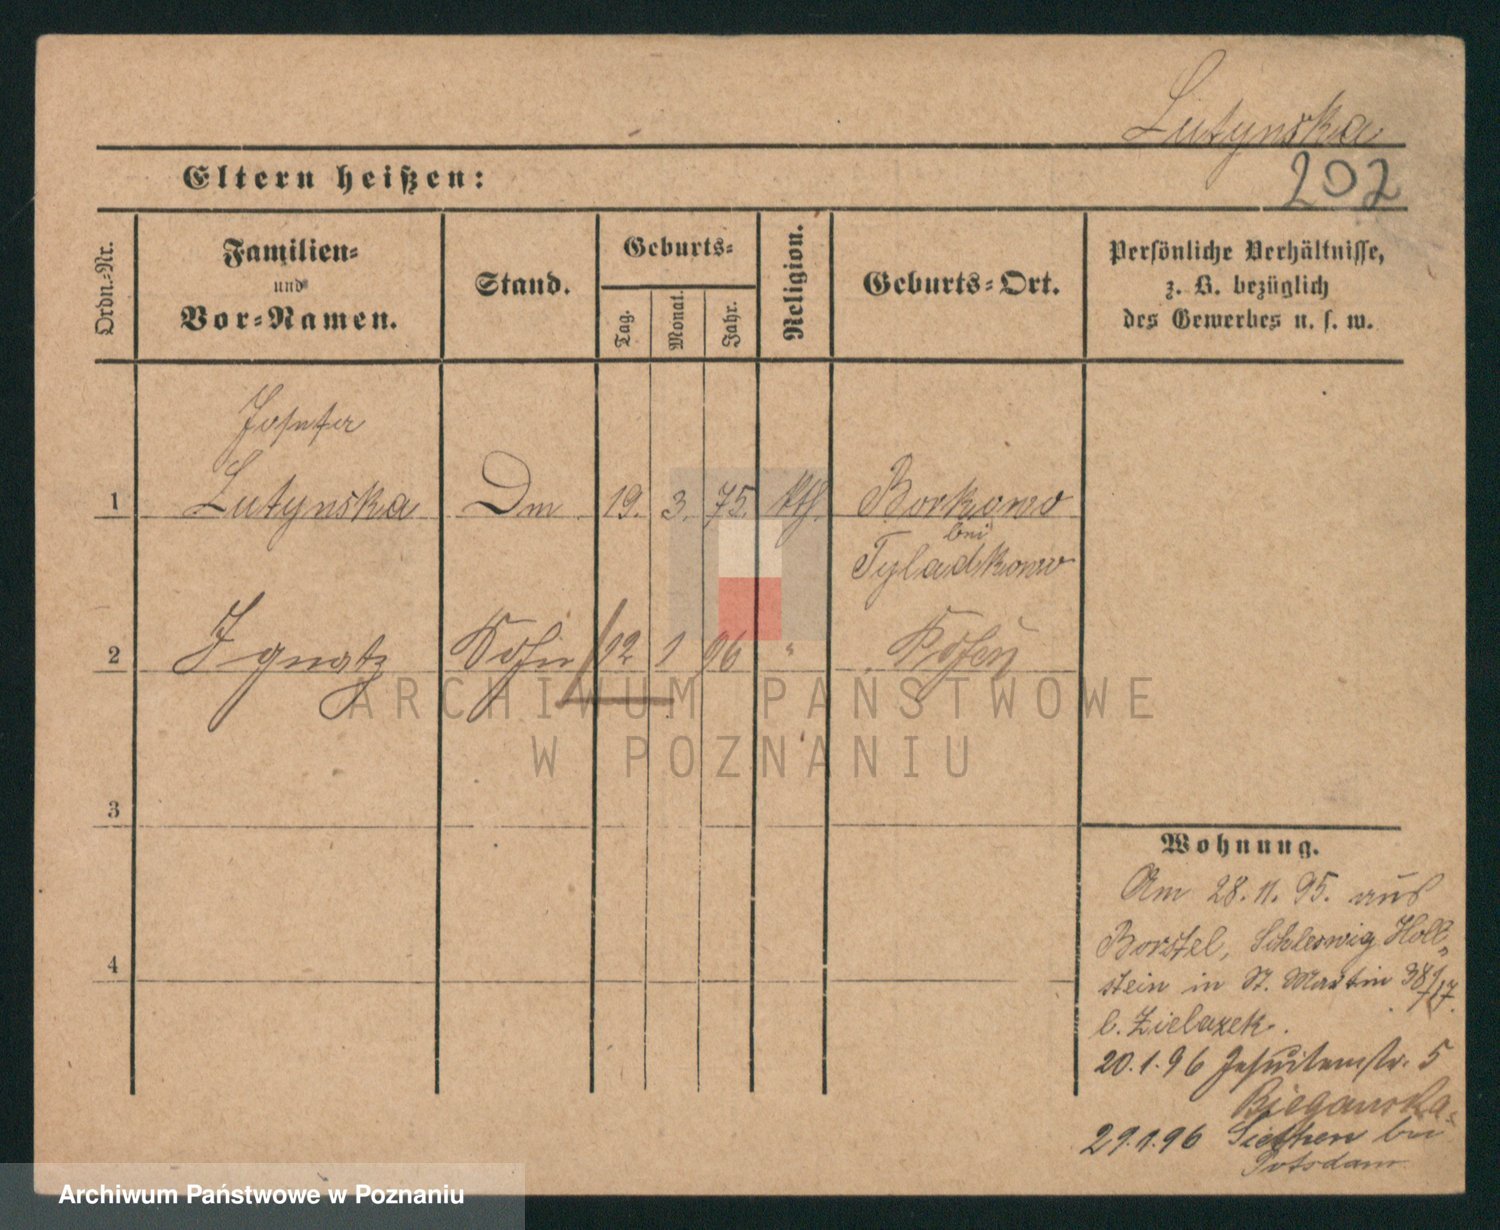 Lutynska
202
Eltern heißen:
Ordn.-Nr.
Familien-
und
Vor-Namen.
Stand.
Geburts-
Tag.
Monat.
Jahr.
Religion.
Geburts-Ort.
Persönliche Verhältnisse,
z. B. bezüglich
des Gewerbes u. s. w.
Josefa
1 Lutynska Dm 19. 3. 75. kth. Borkowo
bei
2 Ignatz Sohn 12 1 96 " Posen
ARCHIWUM PAŃSTWOWE
W POZNANIU
3
4
Wohnung.
Am 28.11.95. aus
Borstel, Schleswig Holl-
stein in St. Martin
b. Zielazek.
20.1.96 Jesuitenstr. 5
Bieganska.
29.1.96 bei
Potsdam
Archiwum Państwowe w Poznaniu